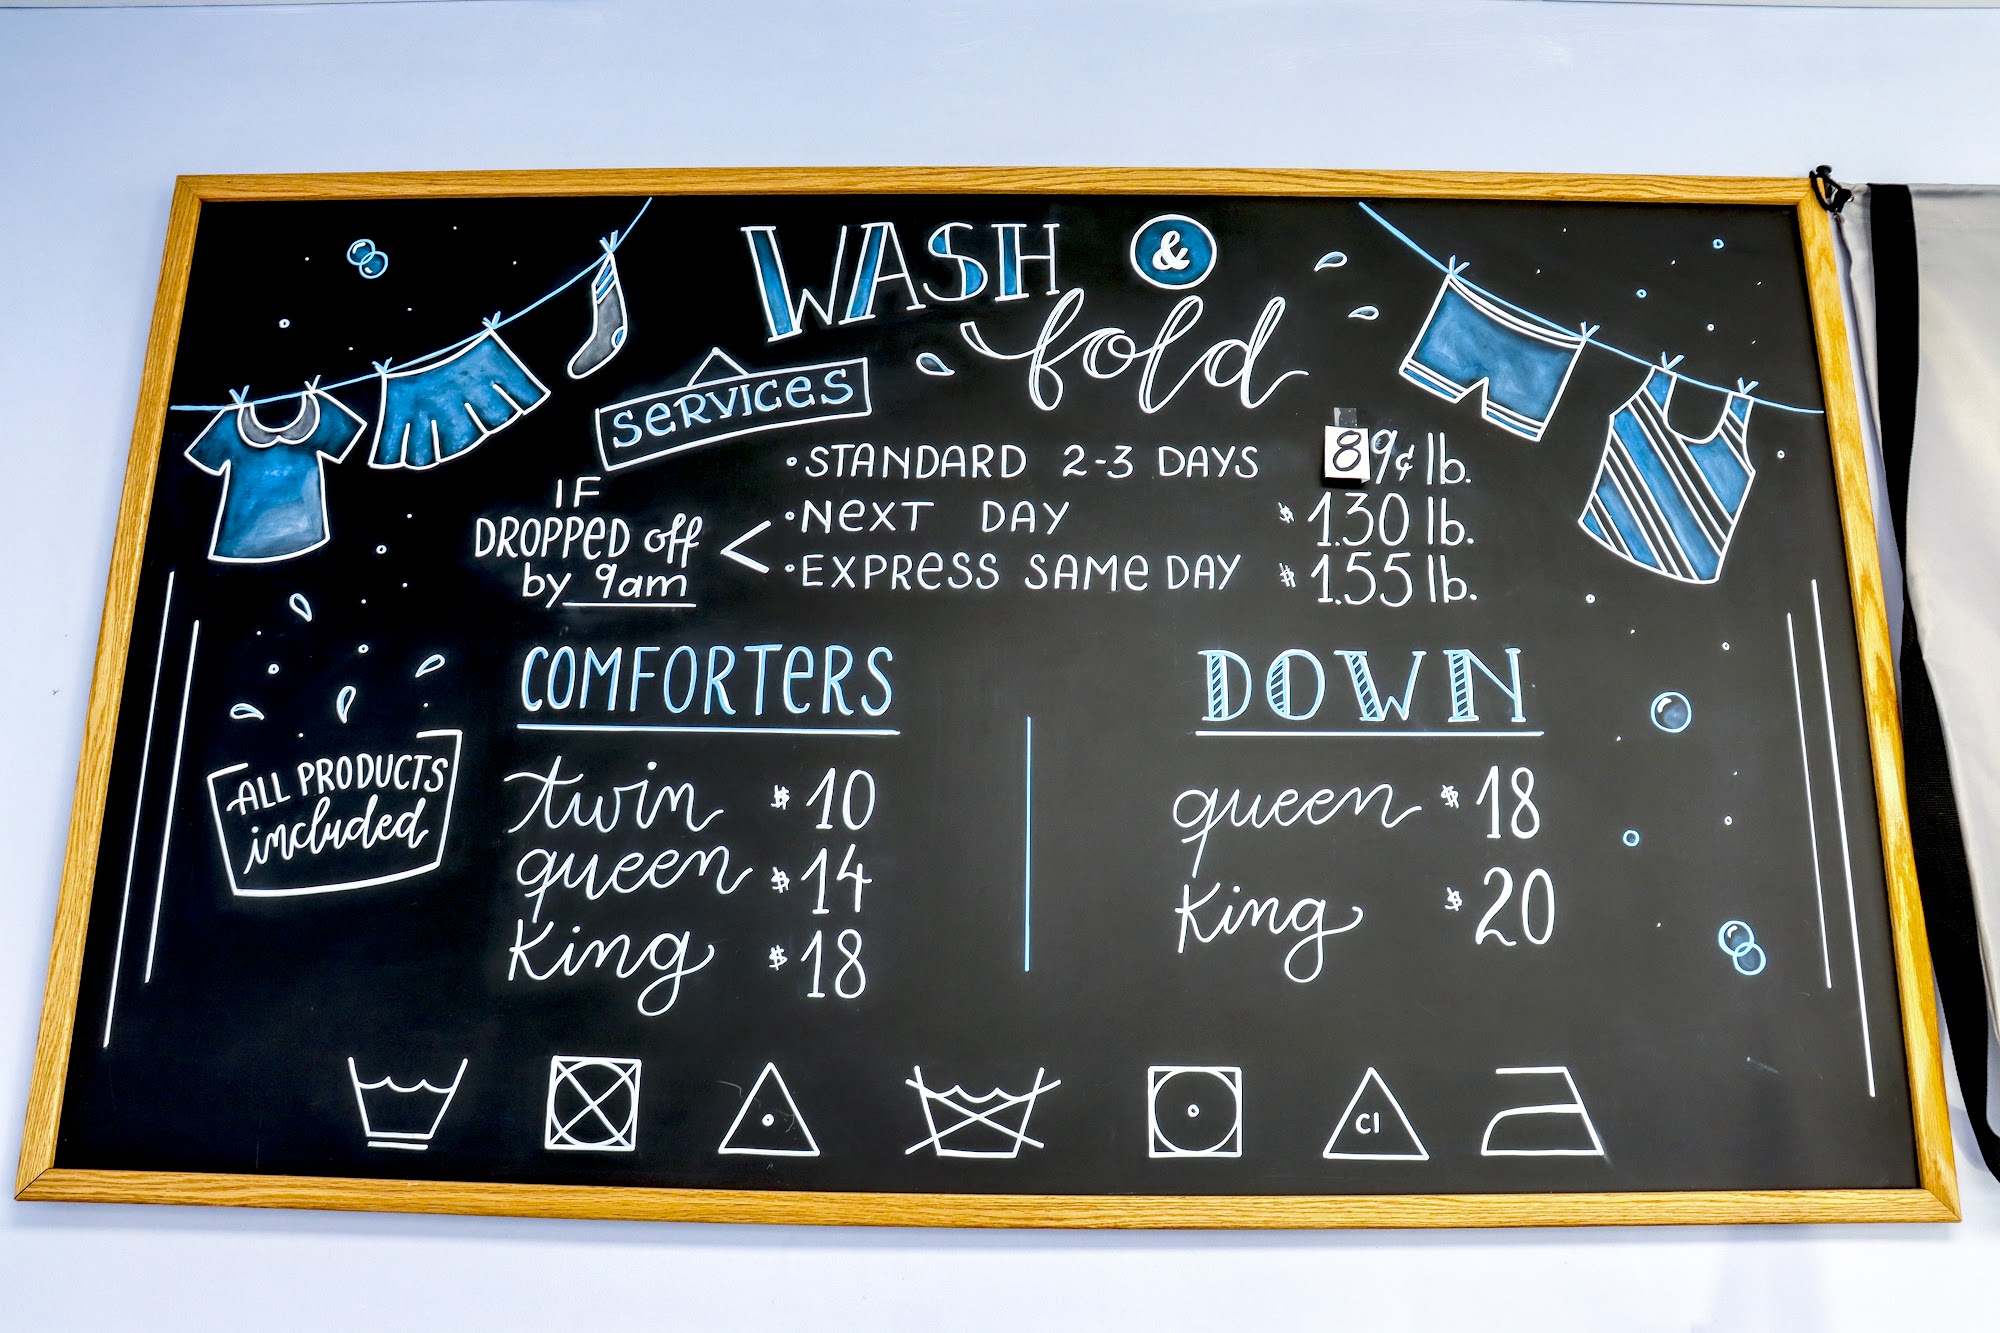 WASH &
fold
SERVICES
• STANDARD 2-3 DAYS 89¢ lb.
IF
DROPPED off
by 9am
• NEXT DAY $1.30 lb.
• EXPRESS SAME DAY $1.55 lb.
COMFORTERS
twin $10
queen $14
King $18
DOWN
queen $18
King $20
ALL PRODUCTS
included
Cl